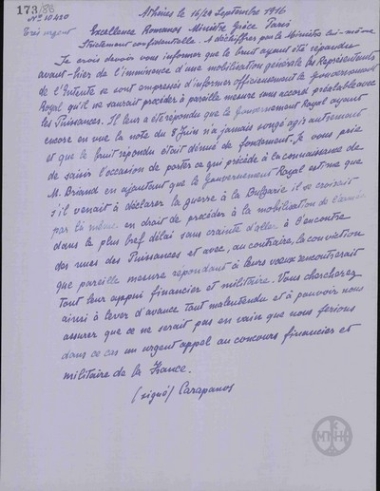 173/88
Nº 10420
Athènes le 16/29 Septembre 1916
Très urgent
Excellence Romanos Ministre Grèce Paris
Strictement confidentielle. A déchiffrer par le Ministre lui-même
Je crois devoir vous informer que le bruit ayant été répandu
avant-hier de l'imminence d'une mobilisation générale les Représentants
de l'Entente se sont empressés d'informer officieusement le Gouvernement
Royal qu'il ne saurait procéder à pareille mesure sans accord préalable avec
les Puissances. Il leur a été répondu que le Gouvernement Royal ayant
encore en vue la note du 8 Juin n'a jamais songé agir autrement
et que le bruit répondu était dénué de fondement. Je vous prie
de saisir l'occasion de porter ce qui précède à la connaissance de
M. Briand en ajoutant que le Gouvernement Royal estime que
s'il venait à déclarer la guerre à la Bulgarie il se croirait
par là même, en droit de procéder à la mobilisation de l'armée
dans le plus bref délai sans crainte d'aller à l'encontre
des vues des Puissances et avec, au contraire, la conviction
que pareille mesure répondant à leurs vœux rencontrerait
tout leur appui financier et militaire. Vous chercherez
ainsi à lever d'avance tout malentendu et à pouvoir nous
assurer que ce ne serait pas en vain que nous ferions
dans ce cas un urgent appel au concours financier et
militaire de la France.
(signé) Carapanos